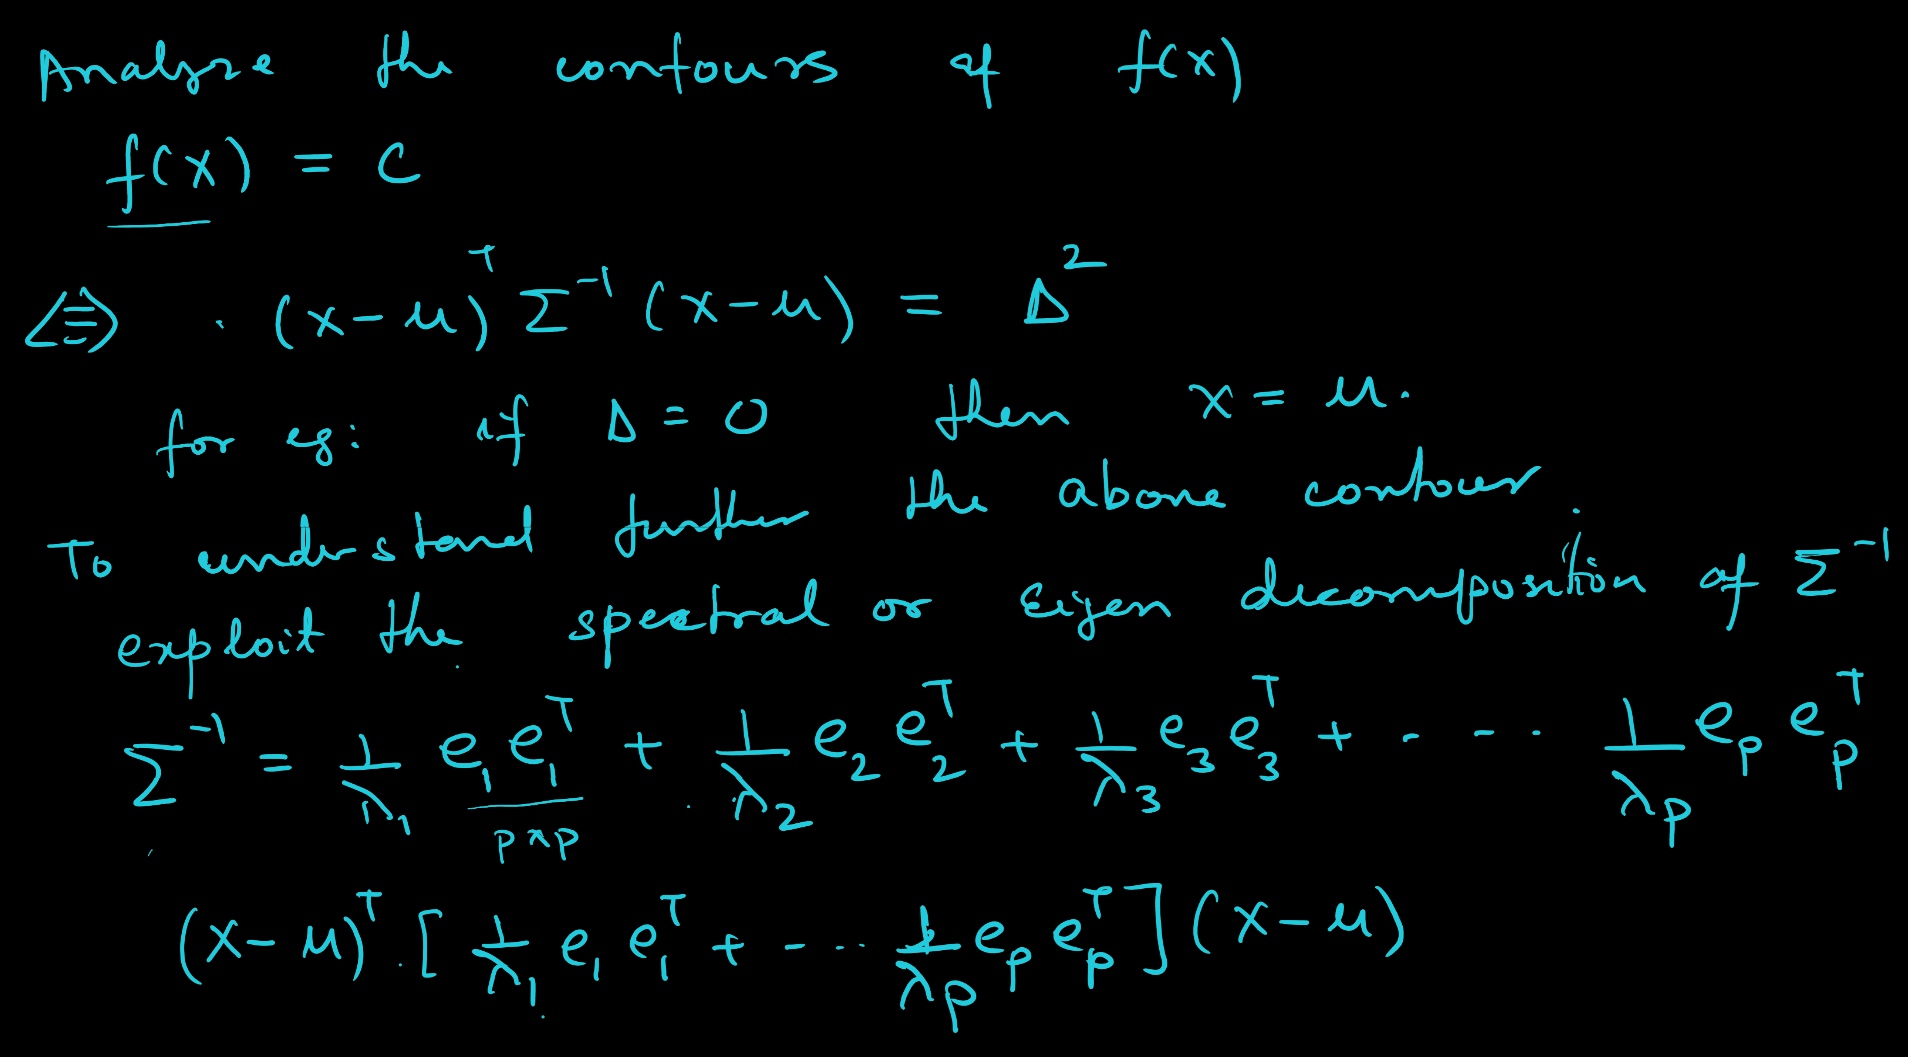 Analyze the contours of f(x)
f(x) = c
⟨≡⟩ (x-μ)ᵀ Σ⁻¹ (x-μ) = Δ²
for eg: if Δ = 0 then x = μ.
To understand further the above contour.
exploit the spectral or Eigen decomposition of Σ⁻¹
Σ⁻¹ = 1/λ₁ e₁ e₁ᵀ + 1/λ₂ e₂ e₂ᵀ + 1/λ₃ e₃ e₃ᵀ + - - - 1/λₚ eₚ eₚᵀ
p×p
(x-μ)ᵀ. [1/λ₁ e₁ e₁ᵀ + - - - 1/λₚ eₚ eₚᵀ] (x-μ)